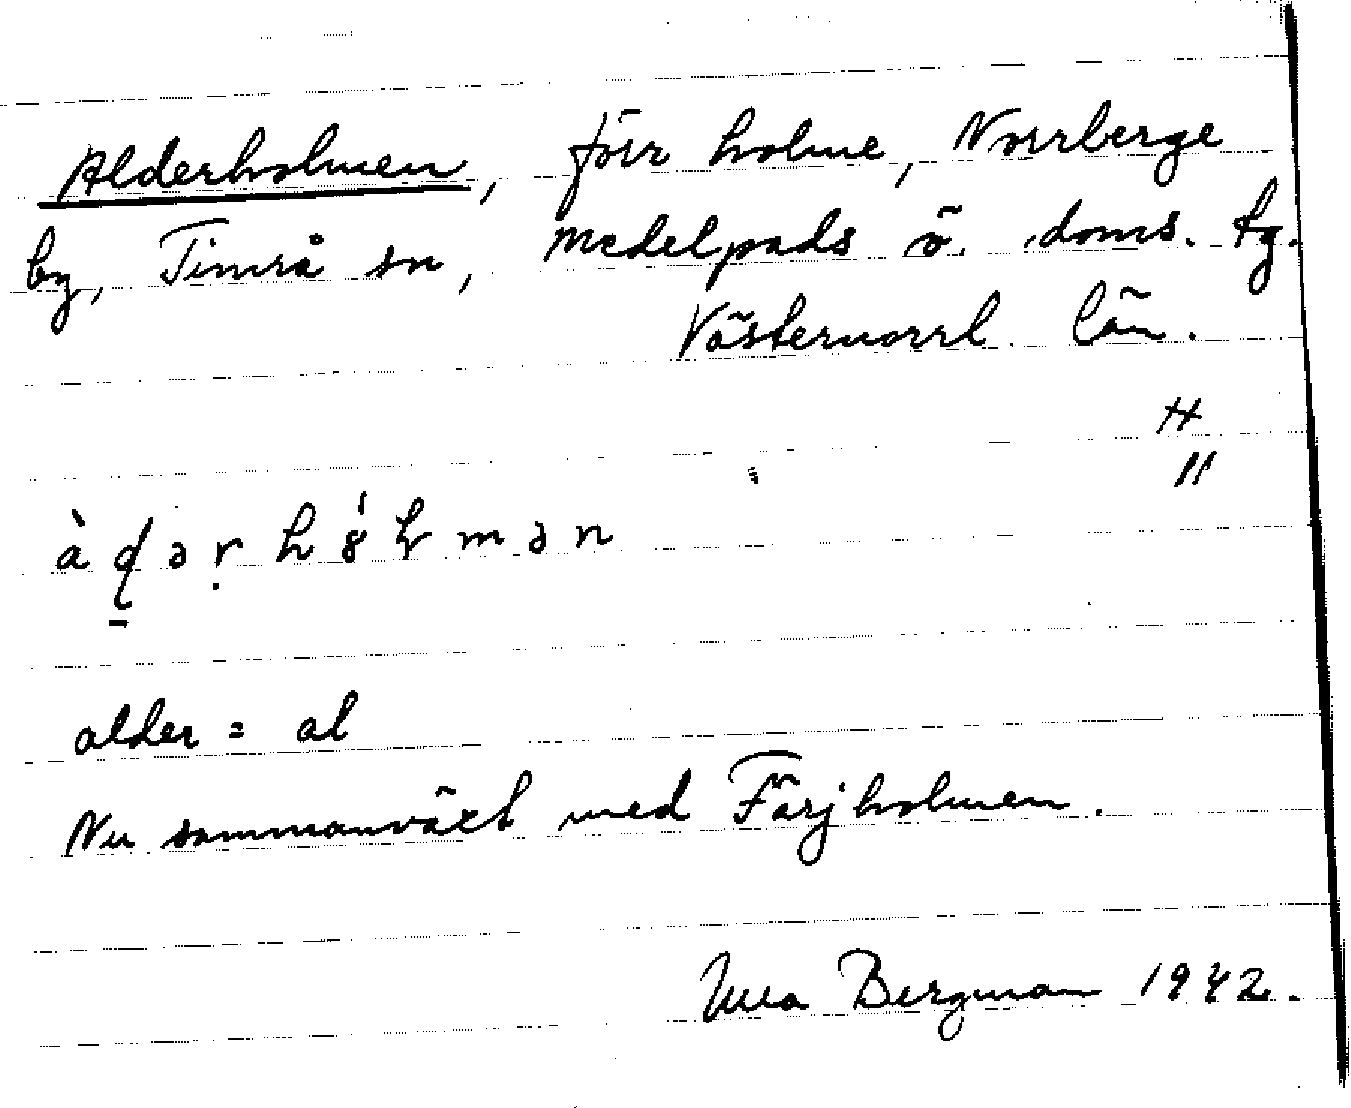 Alderholmen, förr holme, Norrberge
by, Timrå sn, Medelpads ö. doms. tg.
Västernorrl. län.
H
"
alder = al
Nu sammanväxt med Färjholmen.
Ulla Bergman 1942.